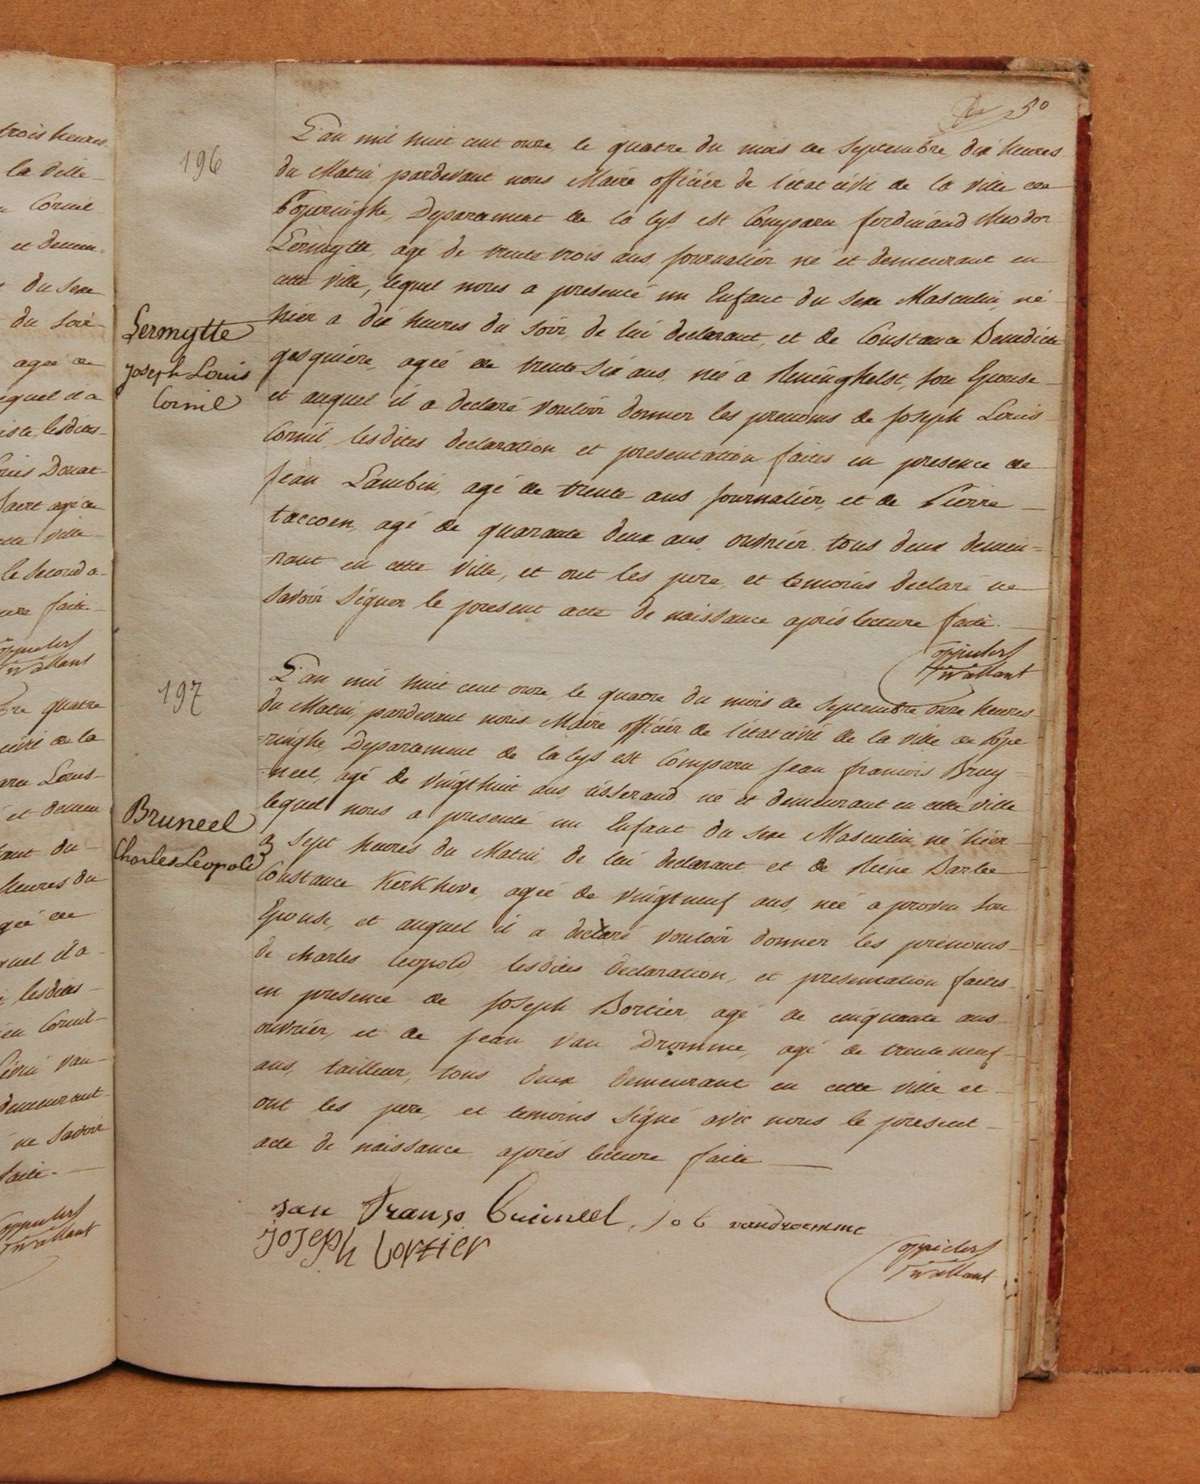 50
196
Lermytte
Joseph Louis
Cornil
L'an mil huit cent onze le quatre du mois de Septembre dix heures
du Matin pardevant nous Maire officier de l'état civil de la ville de
Poperinghe, Departement de la Lys est Comparu ferdinand theodor
Lermytte, agé de trente trois ans journalier né et demeurant en
cette ville, lequel nous a presenté un Enfant du Sexe Masculin, né
hier a dix heures du Soir, de lui declarant, et de Constance Benedicte
gasquiere, agée de trente Six ans, née a Reninghelst, Son Epouse
et auquel il a declaré vouloir donner les prenoms de Joseph Louis
Cornil lesdites declaration et presentation faites en presence de
Jean Lambin, agé de trente ans journalier, et de Pierre
taccoen, agé de quarante deux ans, ouvrier, tous deux demeu=
rant en cette Ville, et ont les pere et temoins declaré ne
Savoir Signer le present acte de naissance après lecture faite.
197
Bruneel
Charles Leopold
L'an mil huit cent onze, le quatre du mois de Septembre onze heures
du Matin pardevant nous Maire officier de l'état civil de la ville de Pope
=ringhe Departement de la Lys est Comparu Jean francois Bruy=
=neel, agé de vingt huit ans tisserand né et demeurant en cette ville
lequel nous a presenté un Enfant du Sexe Masculin né hier
a Sept heures du Matin de lui declarant et de Reine Barbe
Constance Kerkhove, agée de vingt neuf ans, née a proven Son
Epouse, et auquel il a declaré vouloir donner les prénoms
de Charles Leopold lesdites declaration, et presentation faites
en presence de Joseph Bortier agé de cinquante ans
ouvrier, et de Jean Van Dromme, agé de trente neuf
ans, tailleur, tous deux demeurant en cette ville et
ont les pere et temoins Signé avec nous le present
acte de naissance après lecture faite
Jan Franço Bruneel, Job vandromme
Joseph bortier